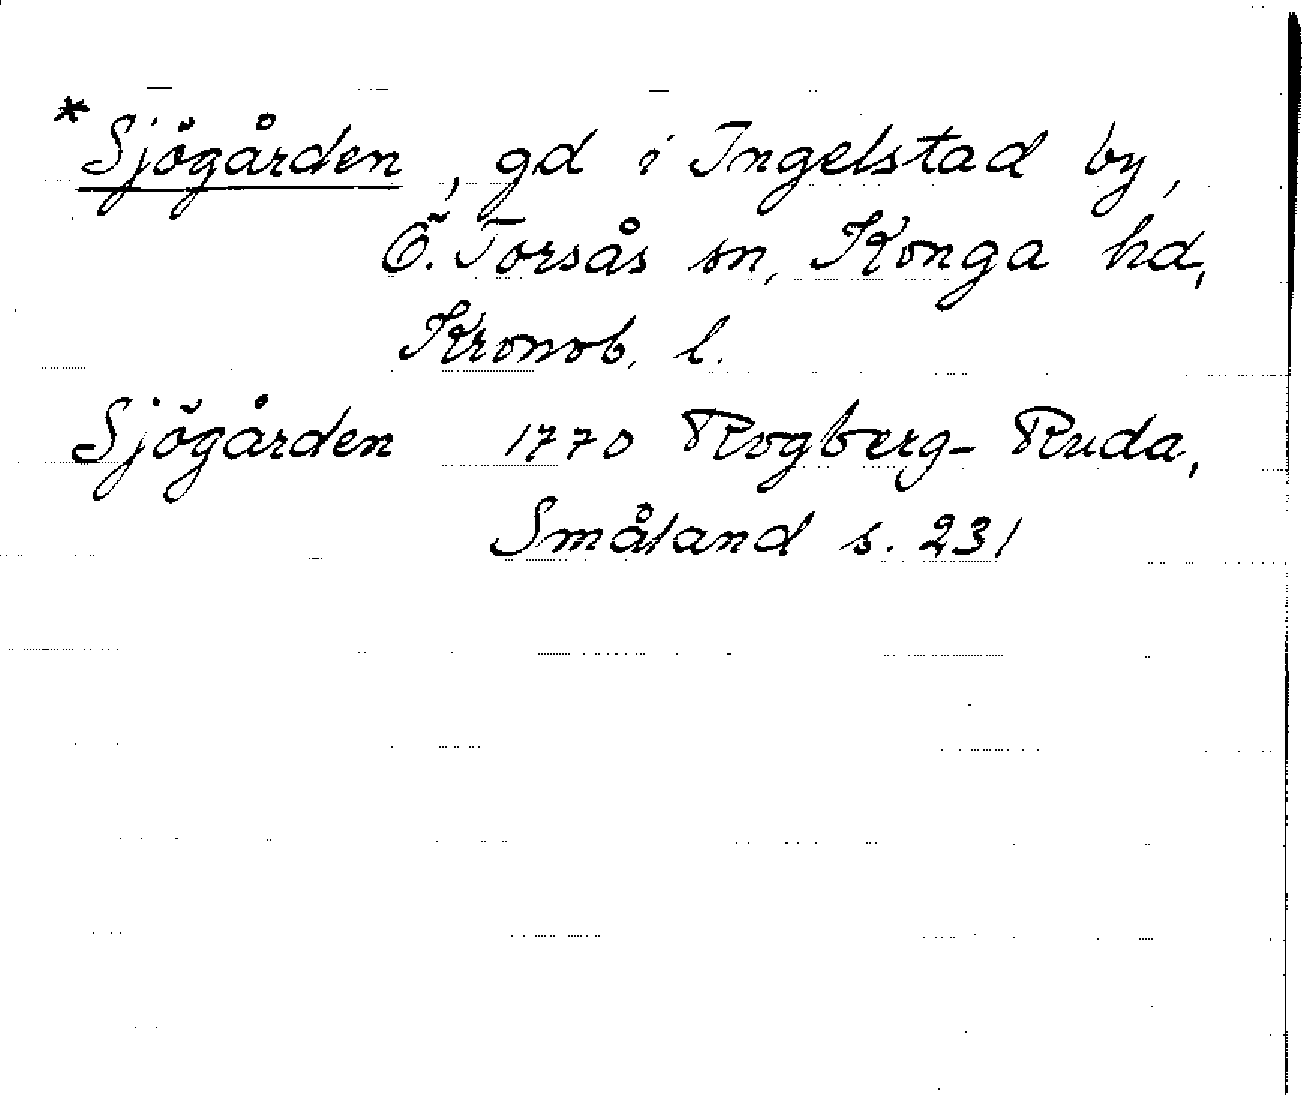 * Sjögården, gd i Ingelstad by,
Ö. Torsås sn, Konga hd,
Kronob. l.
Sjögården 1770 Rogberg-Ruda,
Småland s. 231